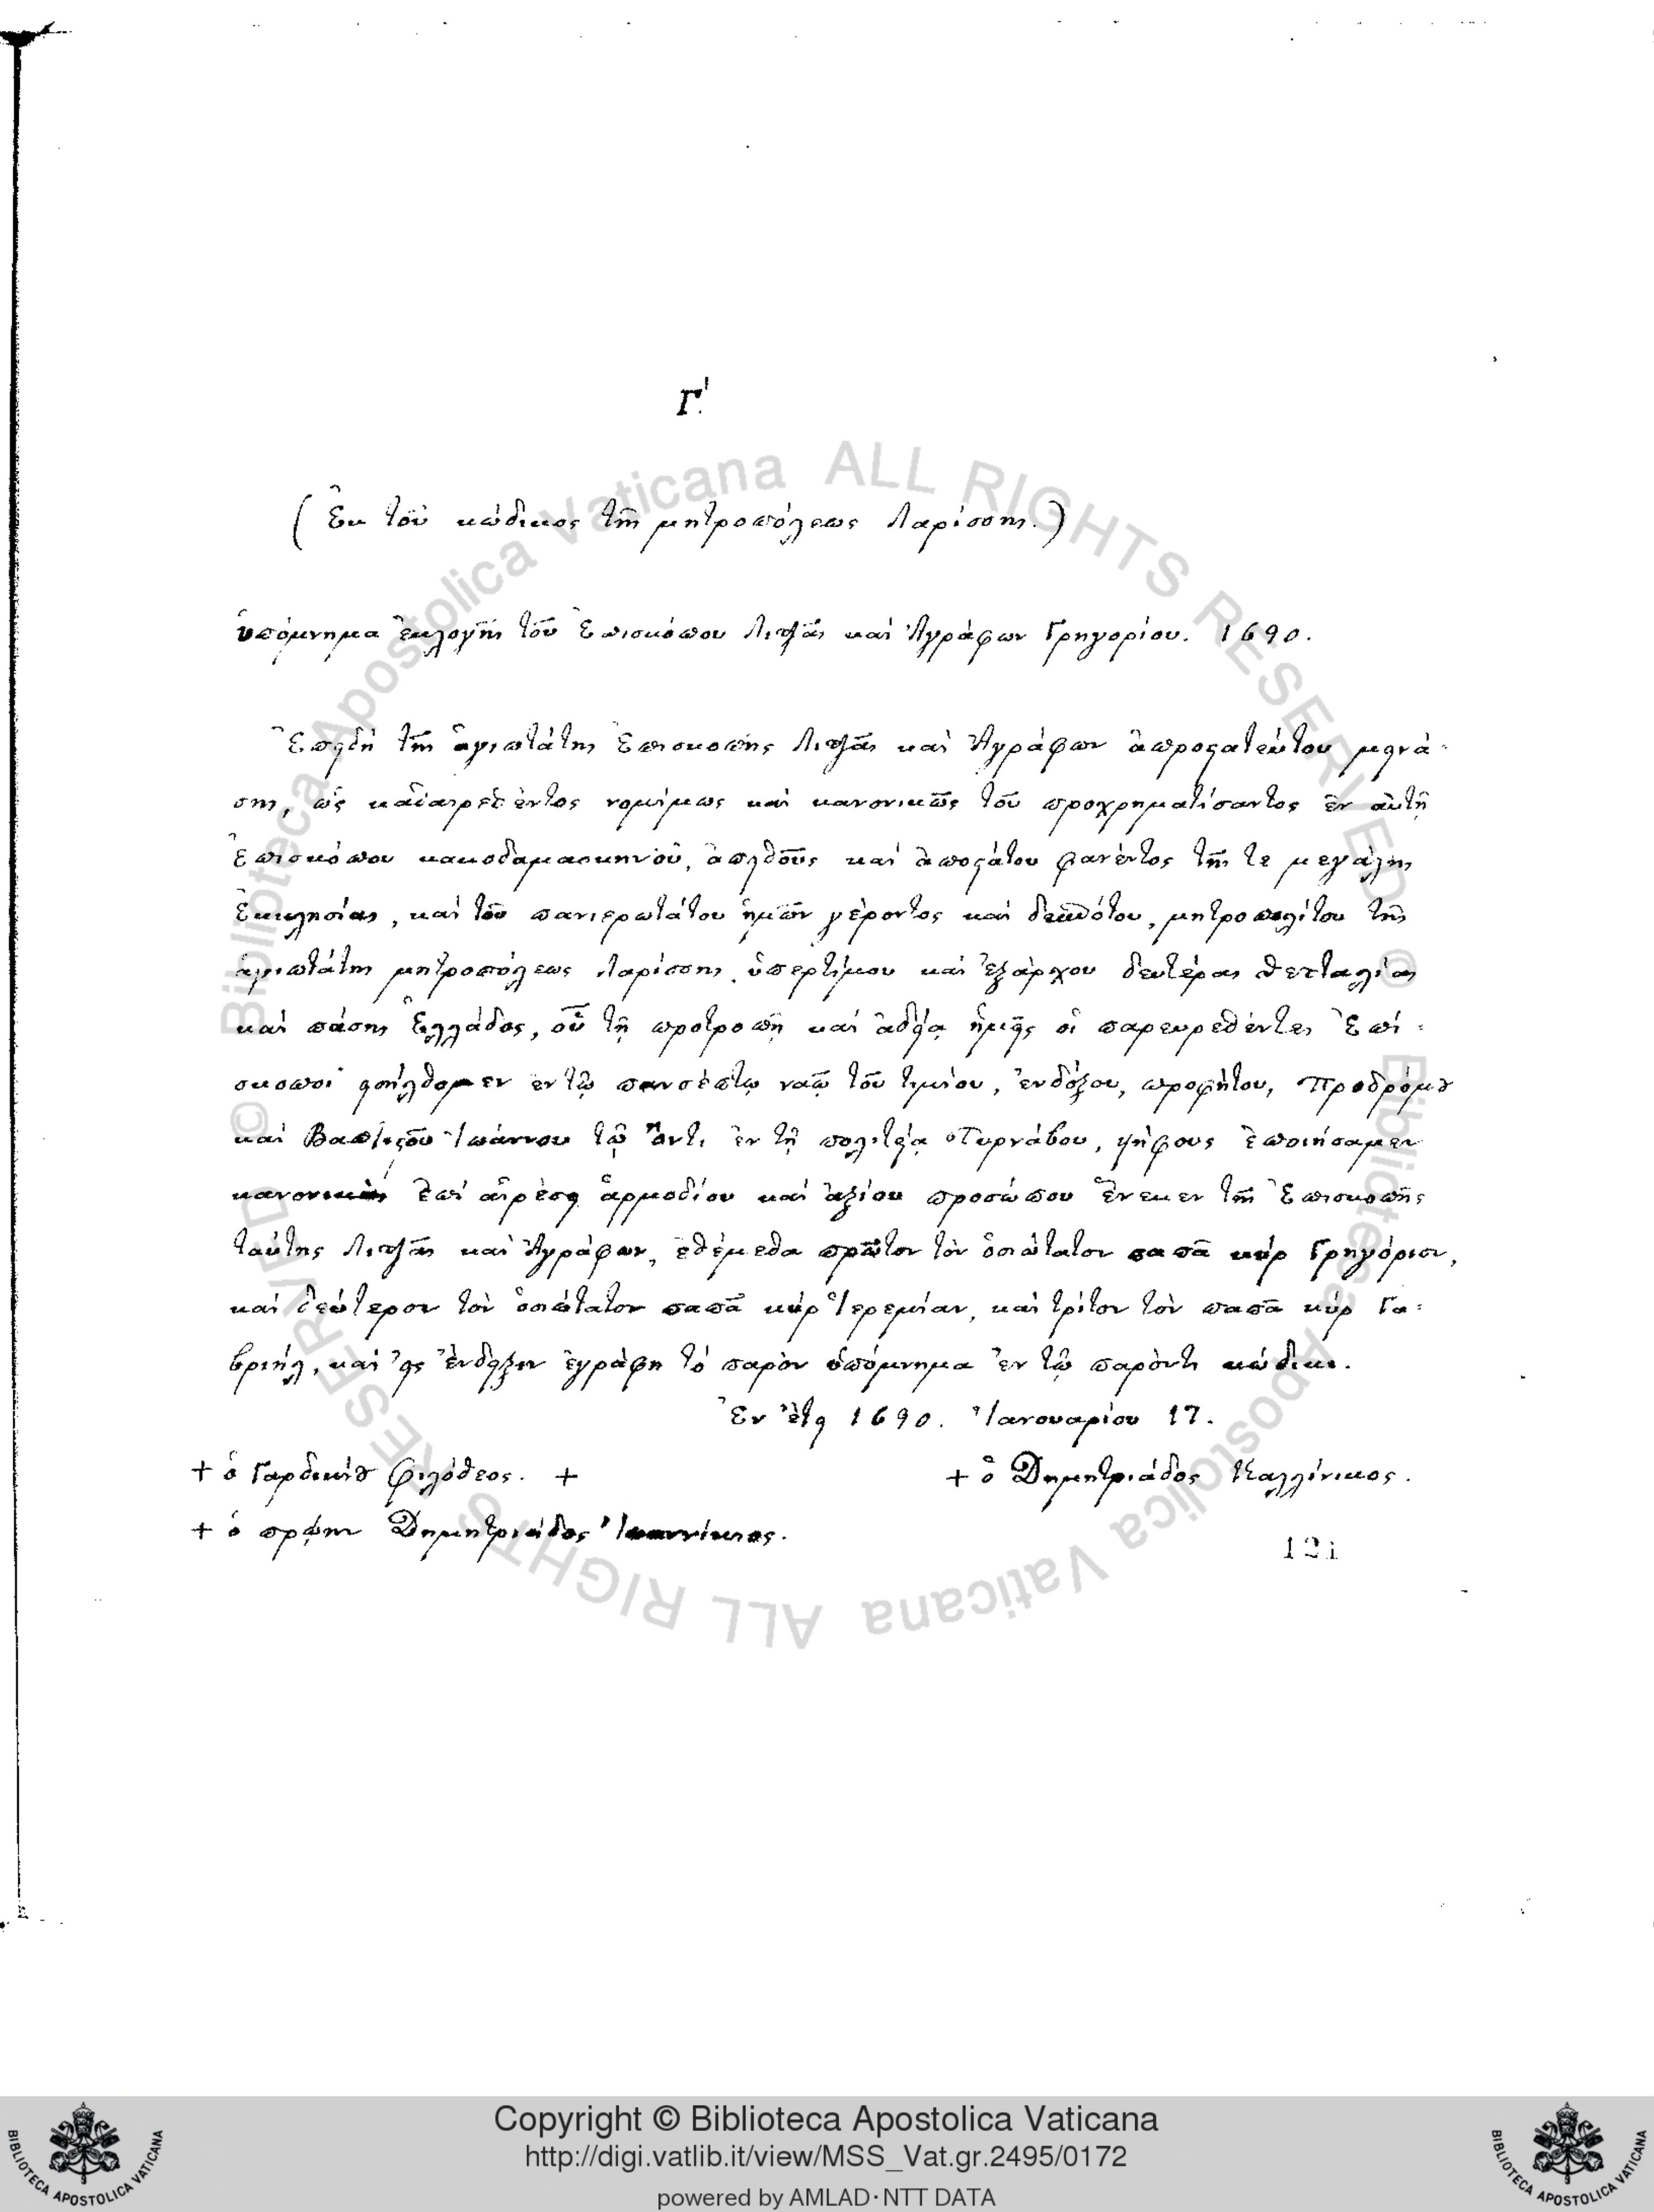 Γ'.
(Ἐκ τοῦ κώδικος τῆς μητροπόλεως Λαρίσσης.)
ὑπόμνημα ἐκλογῆς τοῦ Ἐπισκόπου Λιτζᾶς καὶ Ἀγράφων Γρηγορίου. 1690.
Ἐπειδὴ τῆς ἁγιωτάτης Ἐπισκοπῆς Λιτζᾶς καὶ Ἀγράφων ἀπροστατεύτου μεινά-
σης, ὡς καθαιρεθέντος νομίμως καὶ κανονικῶς τοῦ προχρηματίσαντος ἐν αὐτῇ
Ἐπισκόπου κακοδαμασκηνοῦ, ἀπειθοῦς καὶ ἀποστάτου φανέντος τῆς τε μεγάλης
Ἐκκλησίας, καὶ τοῦ πανιερωτάτου ἡμῶν γέροντος καὶ δεσπότου, μητροπολίτου τῆς
ἁγιωτάτης μητροπόλεως Λαρίσσης, ὑπερτίμου καὶ ἐξάρχου δευτέρας Θετταλίας
καὶ πάσης Ἑλλάδος, οὗ τῇ προτροπῇ καὶ ἀδείᾳ ἡμεῖς οἱ παρευρεθέντες Ἐπί-
σκοποι εἰσήλθομεν ἐν τῷ πανσέπτῳ ναῷ τοῦ τιμίου, ἐνδόξου, προφήτου, Προδρόμου
καὶ Βαπτιστοῦ Ἰωάννου τῷ ὄντι ἐν τῇ πολιτείᾳ Τυρνάβου, ψήφους ἐποιήσαμεν
κανονικὰς ἐπὶ αἱρέσει ἁρμοδίου καὶ ἀξίου προσώπου ἕνεκεν τῆς Ἐπισκοπῆς
ταύτης Λιτζᾶς καὶ Ἀγράφων, ἐθέμεθα πρῶτον τὸν ὁσιώτατον παπᾶ κύρ Γρηγόριον,
καὶ δεύτερον τὸν ὁσιώτατον παπᾶ κύρ Ἱερεμίαν, καὶ τρίτον τὸν παπᾶ κύρ Γα-
βριήλ, καὶ εἰς ἔνδειξιν ἐγράφη τὸ παρὸν ὑπόμνημα ἐν τῷ παρόντι κώδικι.
Ἐν ἔτει 1690. Ἰανουαρίου 17.
+ ὁ Γαρδικίου Φιλόθεος. + + ὁ Δημητριάδος Καλλίνικος.
+ ὁ πρῴην Δημητριάδος Ἰωαννίκιος.
121
© Biblioteca Apostolica Vaticana ALL RIGHTS RESERVED
© Biblioteca Apostolica Vaticana ALL RIGHTS RESERVED
Copyright © Biblioteca Apostolica Vaticana
http://digi.vatlib.it/view/MSS_Vat.gr.2495/0172
powered by AMLAD·NTT DATA
BIBLIOTECA APOSTOLICA VATICANA
BIBLIOTECA APOSTOLICA VATICANA